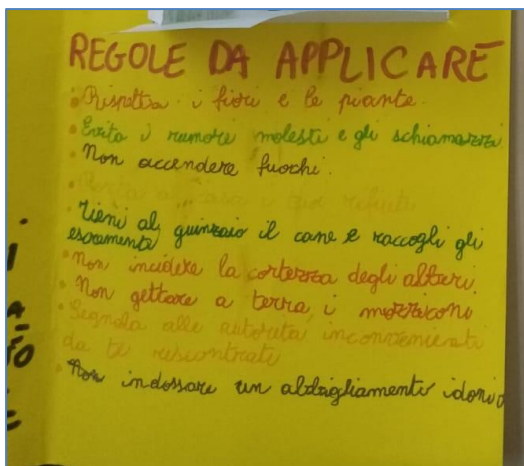 REGOLE DA APPLICARE
• Rispetta i fiori e le piante.
• Evita i rumore molesti e gli schiamazzi
• Non accendere fuochi.
• Porta a casa i tuoi rifiuti
• Tieni al guinzaio il cane e raccogli gli
escramenti
• Non incidere la corteззa degli alberi.
• Non gettare a terra i mozziconi
• Segnala alle autorità inconvenienti
da te riscontrati
• Non indossare un abbigliamento idonio